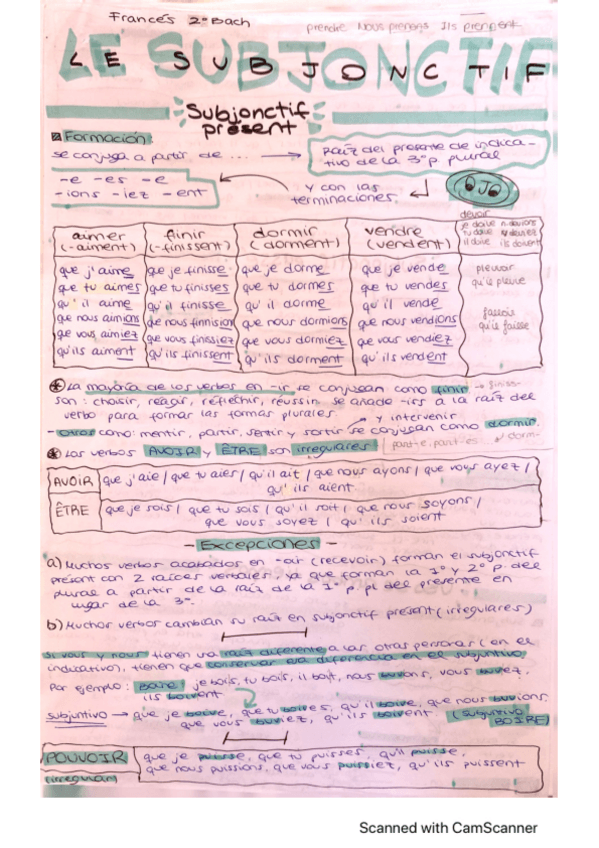 Francés 2º Bach
prendre Nous prenons Ils prennent
LE SUBJONCTIF
LE SUBJONCTIF
Subjonctif
présent
Formación:
se conjuga a partir de ...
raíz del presente de indica-
tivo de la 3ªp plural
-e -es -e
-ions -iez -ent
y con las
terminaciones.
OJO
devoir
je doive n. devions
tu doives v. deviez
il doive ils doivent
aimer
(-aiment)
finir
(-finissent)
dormir
(dorment)
vendre
(vendent)
que j'aime
que tu aimes
qu'il aime
que nous aimions
que vous aimiez
qu'ils aiment
que je finisse
que tu finisses
qu'il finisse
que nous finnision
que vous finissiez
qu'ils finissent
que je dorme
que tu dormes
qu'il dorme
que nous dormions
que vous dormiez
qu'ils dorment
que je vende
que tu vendes
qu'il vende
que nous vendions
que vous vendiez
qu'ils vendent
pleuvoir
qu'il pleuve
La mayoría de los verbos en -ir se conjugan como finir → finiss-
son: choisir, réagir, réfléchir, réussir. se añade -irs a la raíz del
verbo para formar las formas plurales.
y intervenir
- otros como: mentir, partir, sentir y sortir se conjugan como dormir.
part-e, part-es
dorm-
Los verbos AVOIR y ÊTRE son irregulares
AVOIR
que j'aie / que tu aies / qu'il ait / que nous ayons / que vous ayez /
qu'ils aient
ÊTRE
que je sois / que tu sois / qu'il soit / que nous soyons /
que vous soyez / qu'ils soient
- Excepciones -
a) Muchos verbos acabados en -oir (recevoir) forman el subjonctif
présent con 2 raíces verbales, ya que forman la 1ª y 2ª p. del
plural a partir de la raíz de la 1ª p. pl del presente en
lugar de la 3ª.
b) Muchos verbos cambian su raíz en subjonctif présent (irregulares)
si vous y nous tienen una raíz diferente a las otras personas (en el
indicativo), tienen que conservar esa diferencia en el subjuntivo,
Por ejemplo: Boire, je bois, tu bois, il boit, nous buvons, vous buvez,
ils boivent
subjuntivo → que je boive, que tu boives, qu'il boive, que nous buvions,
que vous buviez, qu'ils boivent. (subjuntivo
BOIRE)
POUVOIR
(irregular)
que je puisse, que tu puisses, qu'il puisse,
que nous puissions, que vous puissiez, qu'ils puissent
Scanned with CamScanner